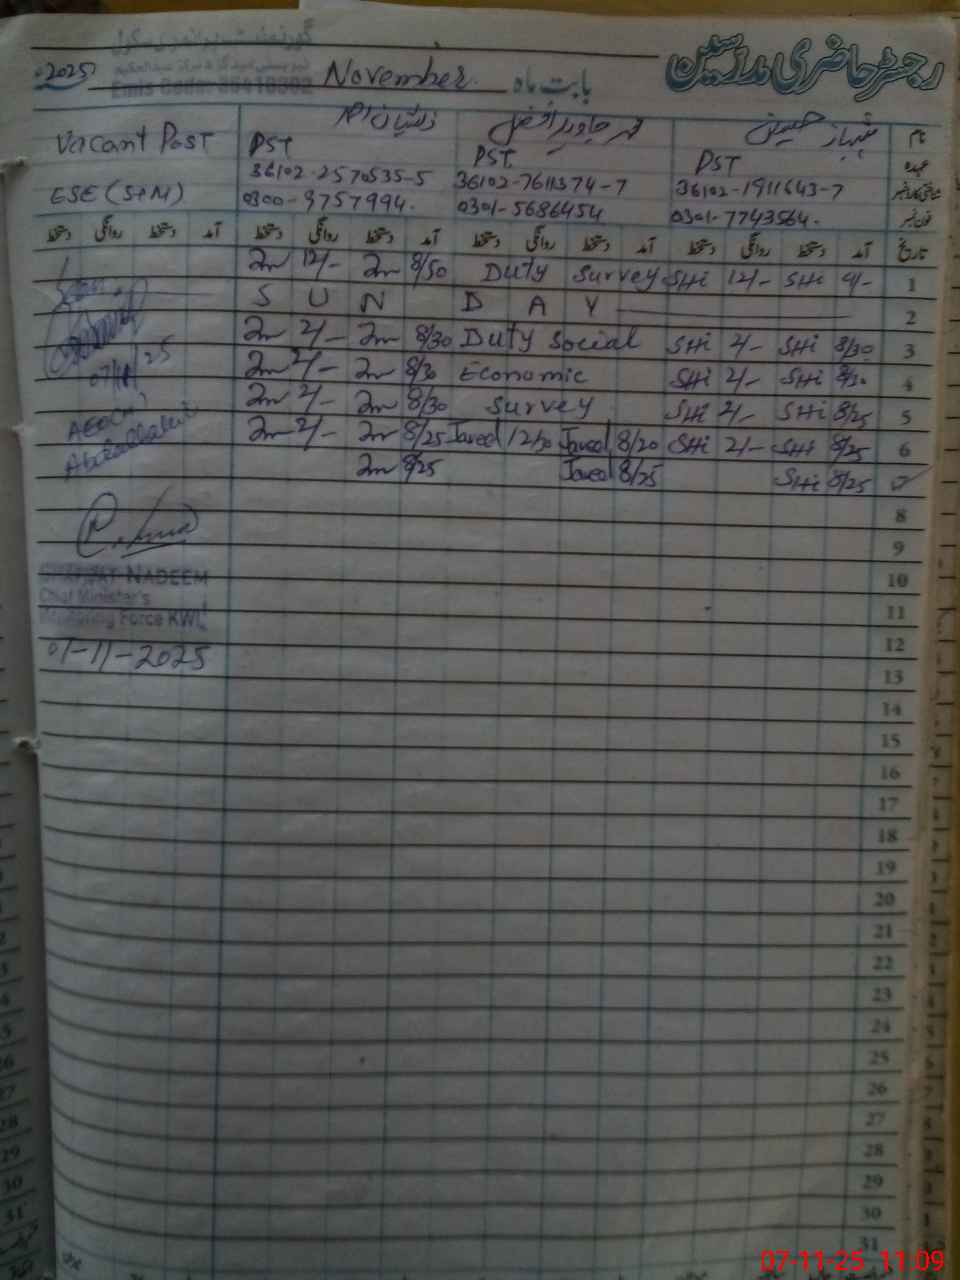 رجسٹر حاضری مدرسین
بابت ماہ November 2025
گورنمنٹ پرائمری سکول
Emis Code:
نام شہباز حسین
عہدہ PST PST PST Vacant Post
شناختی کارڈ نمبر 36102-1911643-7 36102-7611374-7 36102-2570535-5 ESE (S+M)
فون نمبر 0301-7743564. 0301-5686454 0300-9757994.
تاریخ آمد دستخط روانگی دستخط آمد دستخط روانگی دستخط آمد دستخط روانگی دستخط آمد دستخط روانگی دستخط
2m 12/- 2m 8/50 Duty Survey SHi 12/- SHi 9/- 1
S U N D A Y 2
2m 2/- 2m 8/30 Duty Social SHi 2/- SHi 8/30 3
2m 2/- 2m 8/30 Economic SHi 2/- SHi 8/30 4
2m 2/- 2m 8/30 Survey SHi 2/- SHi 8/25 5
2m 2/- 2m 8/25 Javed 12/30 Javed 8/20 SHi 2/- SHi 8/25 6
2m 8/25 Javed 8/25 SHi 8/25 7
07/11/25
8
9
NADEEM 10
Chief Minister's
Monitoring Force KWL 11
12
07-11-2025
13
14
15
16
17
18
19
20
21
22
23
24
25
26
27
28
29
30
31
07-11-25 11:09